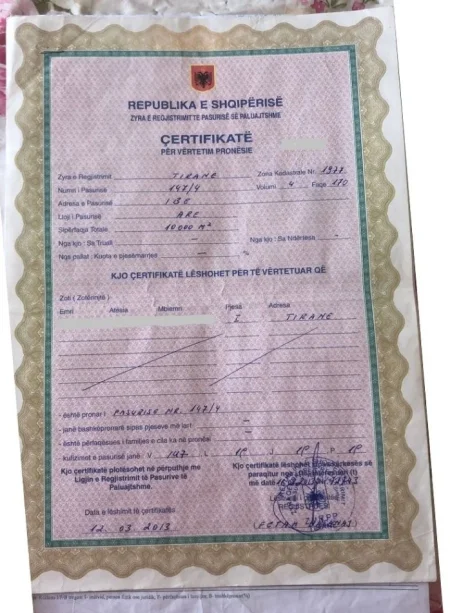 REPUBLIKA E SHQIPËRISË
ZYRA E REGJISTRIMIT TË PASURISË SË PALUAJTSHME
ÇERTIFIKATË
PËR VËRTETIM PRONËSIE
Zyra e Regjistrimit TIRANE Zona Kadastrale Nr. 1977
Numri i Pasurisë 147/4 Volumi 4 Faqe 170
Adresa e Pasurisë IBE
Lloji i Pasurisë ARE
Sipërfaqja Totale 10000 M²
Nga kjo : Sa Trualli — Nga kjo : Sa Ndërtesa —
Nqs psillat : Kuota e pjesëmarrjes — %
KJO ÇERTIFIKATË LËSHOHET PËR TË VËRTETUAR QË
Zoti ( Zotërinjtë )
Emri Atësia Mbiemri Pjesa Adresa
I TIRANE
- është pronar i PASURISE NR. 147/4
- janë bashkëpronarë sipas pjesëve më lart —
- është përfaqësues i familjes e cila ka në pronësi —
- kufizimet e pasurisë V 147 L 1P J 1P P 1P
Kjo çertifikatë plotësohet në përputhje me
Ligjin e Regjistrimit të Pasurive të
Paluajtshme.
Kjo çertifikatë lëshohet
së
paraqitur nga
(I)
më datë
Data e lëshimit të çertifikatës
12.03.2013